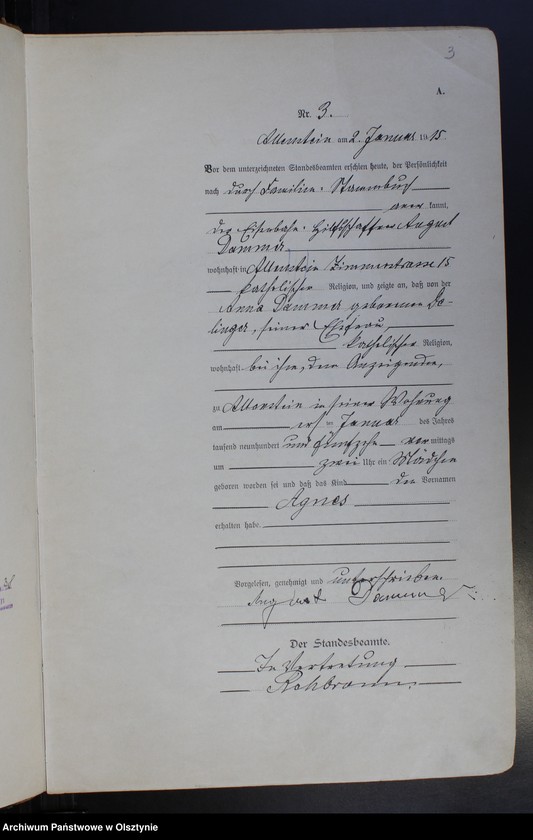 3
A.
Nr. 3.
Allenstein am 2. Januar 1915
Vor dem unterzeichneten Standesbeamten erschien heute, der Persönlichkeit
nach durch Familien-Stammbuch
kannt,
der Eisenbahn-Hilfsschaffner August
Dammer
wohnhaft in Allenstein Zimmerstrasse 15
katholischer Religion, und zeigte an, daß von der
Anna Dammer geborenen
seiner Ehefrau,
katholischer Religion,
wohnhaft bei ihm, dem Anzeigenden,
zu Allenstein in seiner Wohnung
am ersten Januar des Jahres
tausend neunhundert und fünfzehn vormittags
um zwei Uhr ein Mädchen
geboren worden sei und daß das Kind den Vornamen
Agnes
erhalten habe.
Vorgelesen, genehmigt und unterschrieben.
August Dammer
Der Standesbeamte.
In Vertretung
Archiwum Państwowe w Olsztynie